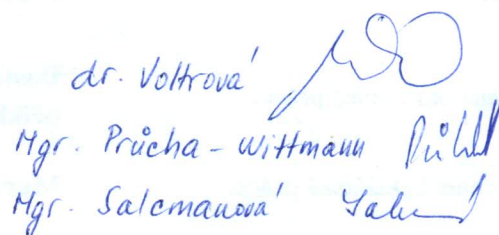 dr. Voltrová
Mgr. Průcha - Wittmann
Mgr. Salcmanová